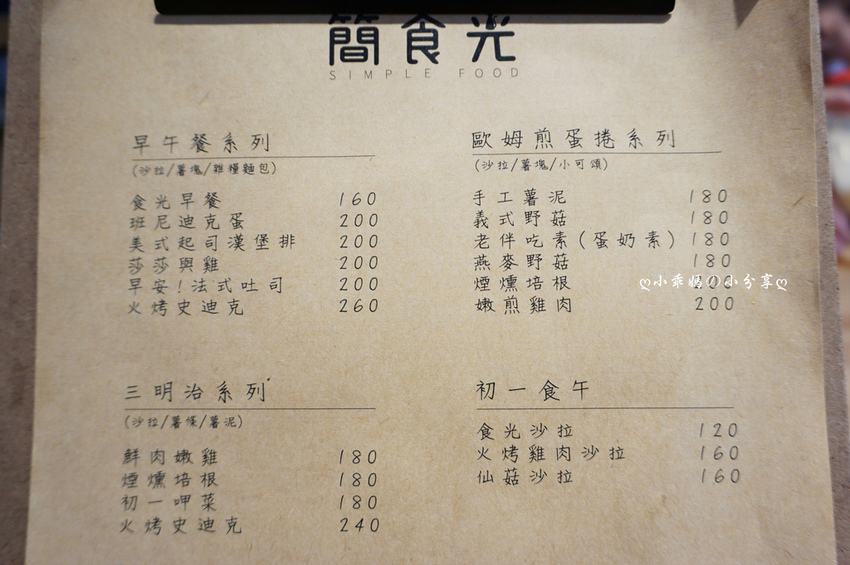 簡食光
SIMPLE FOOD
早午餐系列
(沙拉/薯塊/雜糧麵包)
食光早餐 160
班尼迪克蛋 200
美式起司漢堡排 200
莎莎與雞 200
早安!法式吐司 200
火烤史迪克 260
歐姆煎蛋捲系列
(沙拉/薯塊/小可頌)
手工薯泥 180
義式野菇 180
老伴吃素(蛋奶素) 180
燕麥野菇 180
煙燻培根
ღ小乖媽の小分享ღ
嫩煎雞肉 200
三明治系列
(沙拉/薯條/薯泥)
鮮肉嫩雞 180
煙燻培根 180
初一呷菜 180
火烤史迪克 240
初一食午
食光沙拉 120
火烤雞肉沙拉 160
仙菇沙拉 160